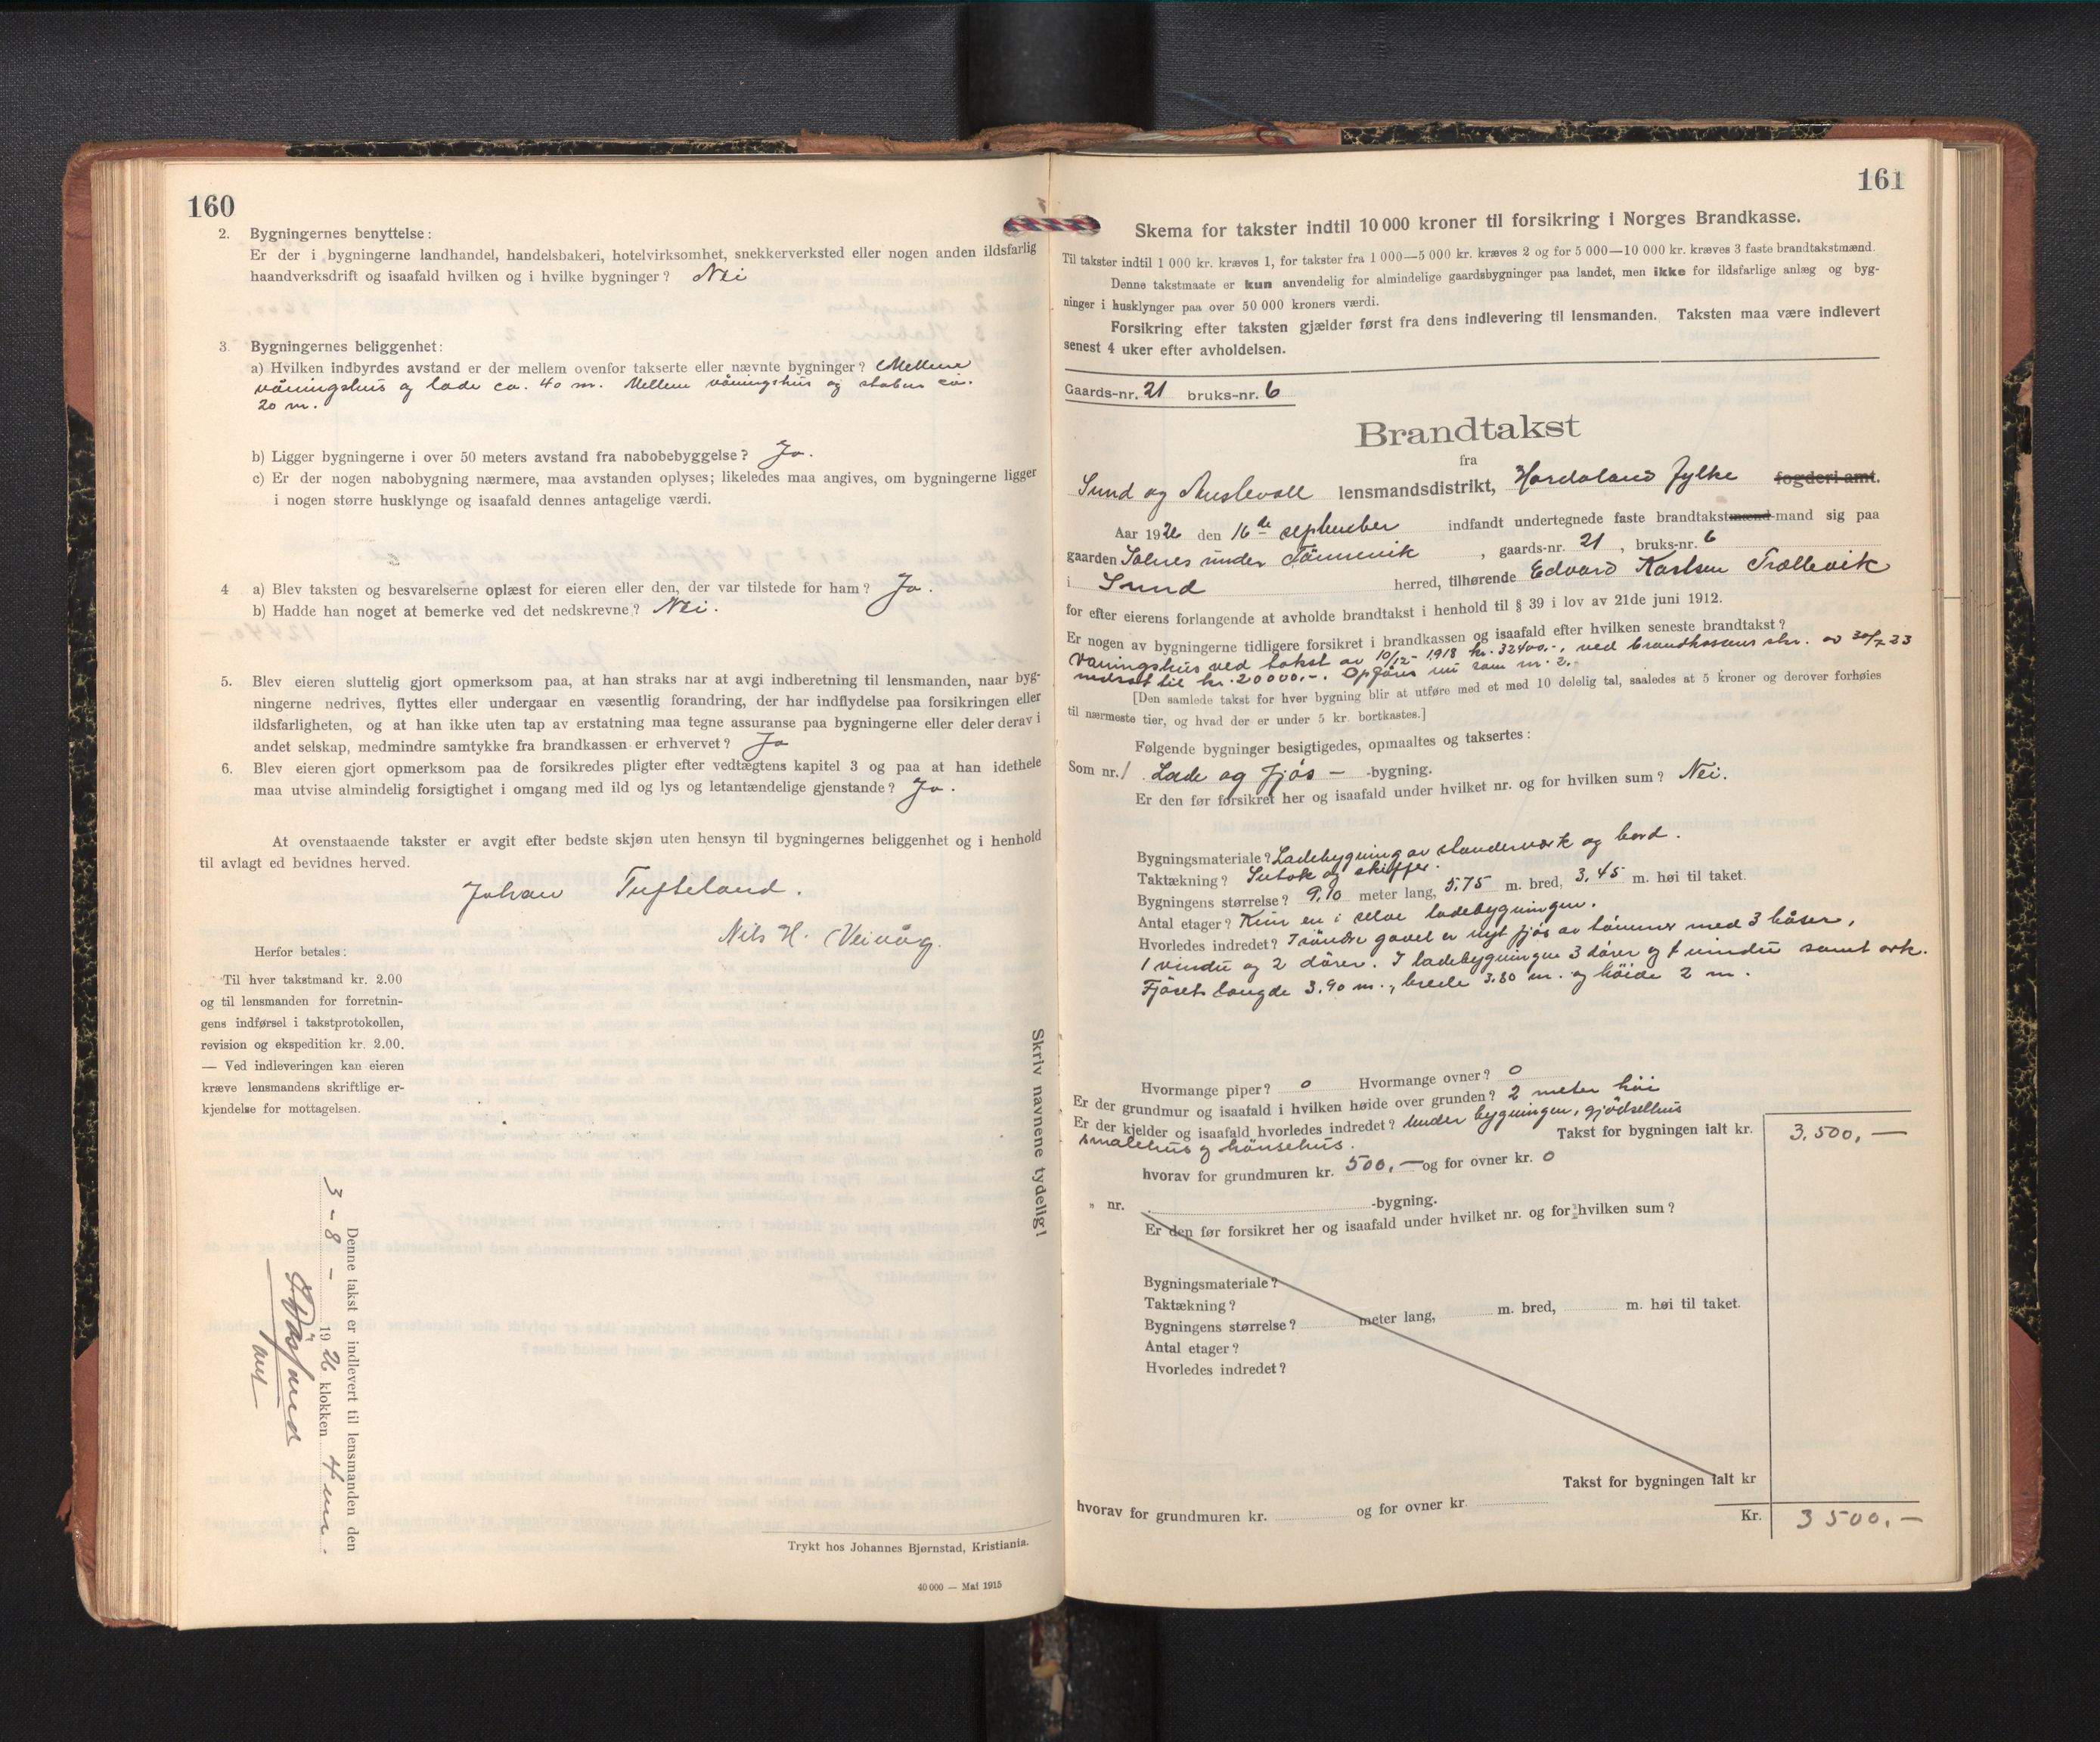 160
2. Bygningernes benyttelse:
Er der i bygningerne landhandel, handelsbakeri, hotelvirksomhet, snekkerverksted eller nogen anden ildsfarlig
haandverksdrift og isaafald hvilken og i hvilke bygninger? Nei
3. Bygningernes beliggenhet:
a) Hvilken indbyrdes avstand er der mellem ovenfor takserte eller nævnte bygninger? Mellem
våningshus og lade ca. 40 m. Mellem våningshus og stabur ca.
20 m.
b) Ligger bygningerne i over 50 meters avstand fra nabobebyggelse? Ja.
c) Er der nogen nabobygning nærmere, maa avstanden oplyses; likeledes maa angives, om bygningerne ligger
i nogen større husklynge og isaafald dennes antagelige værdi.
4 a) Blev taksten og besvarelserne oplæst for eieren eller den, der var tilstede for ham? Ja.
b) Hadde han noget at bemerke ved det nedskrevne? Nei.
5. Blev eieren sluttelig gjort opmerksom paa, at han straks har at avgi indberetning til lensmanden, naar byg-
ningerne nedrives, flyttes eller undergaar en væsentlig forandring, der har indflydelse paa forsikringen eller
ildsfarligheten, og at han ikke uten tap av erstatning maa tegne assuranse paa bygningerne eller deler derav i
andet selskap, medmindre samtykke fra brandkassen er erhvervet? Ja
6. Blev eieren gjort opmerksom paa de forsikredes pligter efter vedtægtens kapitel 3 og paa at han idethele
maa utvise almindelig forsigtighet i omgang med ild og lys og letantændelige gjenstande? Ja.
At ovenstaaende takster er avgit efter bedste skjøn uten hensyn til bygningernes beliggenhet og i henhold
til avlagt ed bevidnes herved.
Johan Tufteland.
Nils H. Veivåg.
Herfor betales:
Til hver takstmand kr. 2.00
og til lensmanden for forretnin-
gens indførsel i takstprotokollen,
revision og ekspedition kr. 2.00.
— Ved indleveringen kan eieren
kræve lensmandens skriftlige er-
kjendelse for mottagelsen.
Denne takst er indlevert til lensmanden den
3-8- 1926 klokken 4 em.
Skriv navnene tydelig!
Trykt hos Johannes Bjørnstad, Kristiania.
40 000 — Mai 1915
161
Skema for takster indtil 10 000 kroner til forsikring i Norges Brandkasse.
Til takster indtil 1 000 kr. kræves 1, for takster fra 1 000—5 000 kr. kræves 2 og for 5 000—10 000 kr. kræves 3 faste brandtakstmænd.
Denne takstmaate er kun anvendelig for almindelige gaardsbygninger paa landet, men ikke for ildsfarlige anlæg og byg-
ninger i husklynger paa over 50 000 kroners værdi.
Forsikring efter taksten gjælder først fra dens indlevering til lensmanden. Taksten maa være indlevert
senest 4 uker efter avholdelsen.
Gaards-nr. 21 bruks-nr. 6
Brandtakst
fra
Sund og Austevoll lensmandsdistrikt, Hordaland fylke fogderi amt.
Aar 1926 den 16de september indfandt undertegnede faste brandtakstmænd-mand sig paa
gaarden Solnes under Tømmervik, gaards-nr. 21, bruks-nr. 6
i Sund herred, tilhørende Edvard Karlsen Trællevik
for efter eierens forlangende at avholde brandtakst i henhold til § 39 i lov av 21de juni 1912.
Er nogen av bygningerne tidligere forsikret i brandkassen og isaafald efter hvilken seneste brandtakst?
Våningshus ved takst av 10/12-1918 kr. 32400,-, ved brandkassens skr. av 30/7 23
nedsat til kr. 20000,-. Opføres nu som nr. 2.-
[Den samlede takst for hver bygning blir at utføre med et med 10 delelig tal, saaledes at 5 kroner og derover forhøies
til nærmeste tier, og hvad der er under 5 kr. bortkastes.]
Følgende bygninger besigtigedes, opmaaltes og taksertes:
Som nr. 1. Lade og fjøs — -bygning.
Er den før forsikret her og isaafald under hvilket nr. og for hvilken sum? Nei.
Bygningsmateriale? Ladebygning av standerverk og bord.
Taktækning? Sutak og skiffer.
Bygningens størrelse? 9,10 meter lang, 5,75 m. bred, 3,45 m. høi til taket.
Antal etager? Kun en i selve ladebygningen.
Hvorledes indredet? I søndre gavel er nyt fjøs av tømmer med 3 båser,
1 vindu og 2 dører. I ladebygningen 3 dører og 1 vindu samt ark.
Fjøsets længde 3.90 m., brede 3.80 m. og høide 2 m.
Hvormange piper? 0 Hvormange ovner? 0
Er der grundmur og isaafald i hvilken høide over grunden? 2 meter høi
Er der kjelder og isaafald hvorledes indredet? Under bygningen, gjødselhus
smalehus og hønsehus. Takst for bygningen ialt kr. 3.500,—
hvorav for grundmuren kr. 500,— og for ovner kr. 0
" nr. -bygning.
Er den før forsikret her og isaafald under hvilket nr. og for hvilken sum?
Bygningsmateriale?
Taktækning?
Bygningens størrelse? meter lang, m. bred, m. høi til taket.
Antal etager?
Hvorledes indredet?
Takst for bygningen ialt kr
hvorav for grundmuren kr. og for ovner kr.
Kr. 3500,—